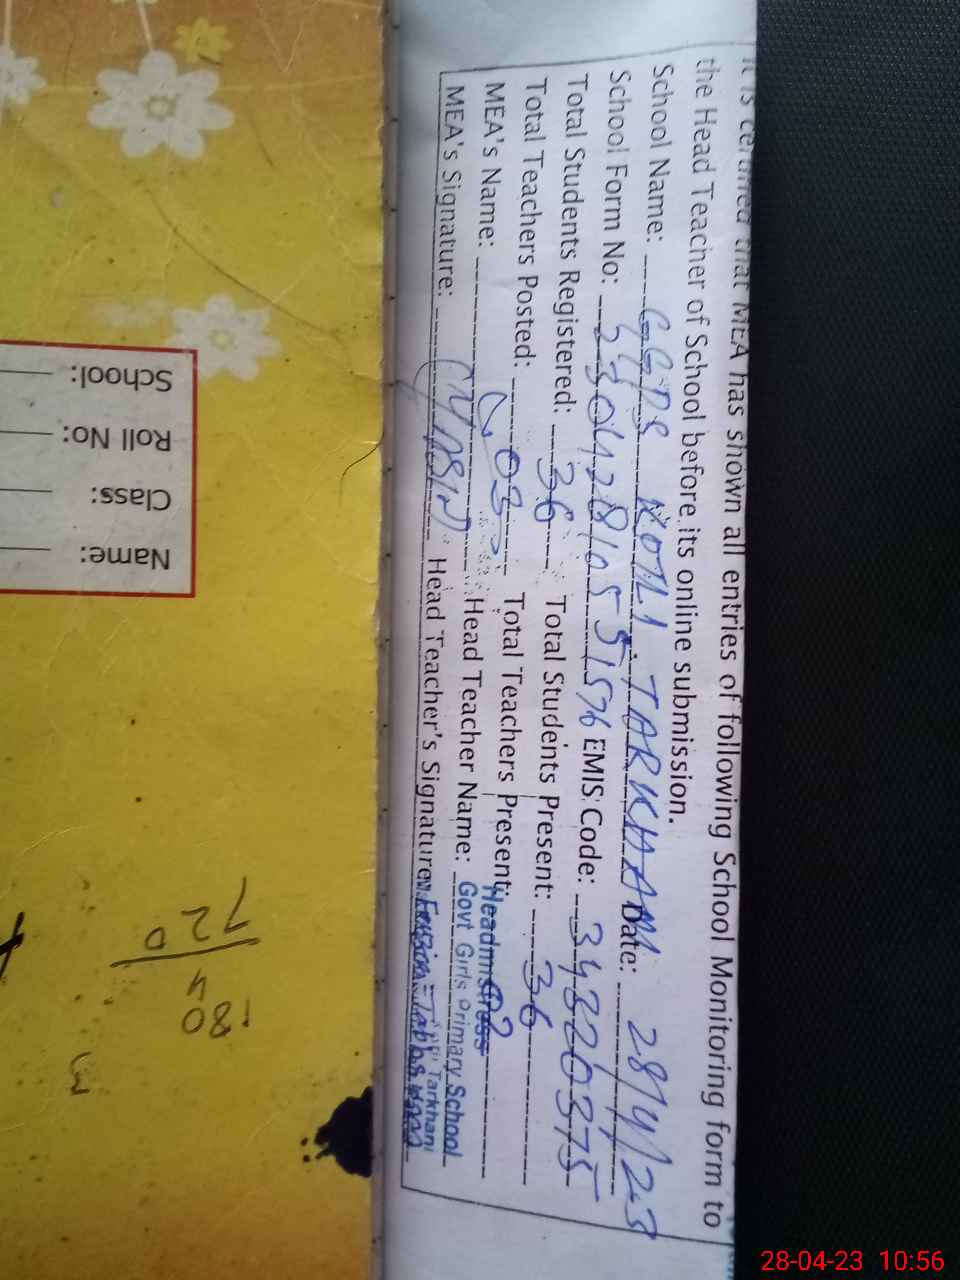 It is certified that MEA has shown all entries of following School Monitoring form to
the Head Teacher of School before its online submission.
School Name: GGPS KOTLI TARKHANI Date: 28/4/23
School Form No: 23042810551576 EMIS Code: 34320375
Total Students Registered: 36 Total Students Present: 36
Total Teachers Posted: 03 Total Teachers Present: 02
MEA's Name: Head Teacher Name: Headmistress
Govt Girls Primary School
MEA's Signature: (YASIN) Head Teacher's Signature: Tarkhani
School:
Roll No:
Class:
Name:
720
180
28-04-23 10:56